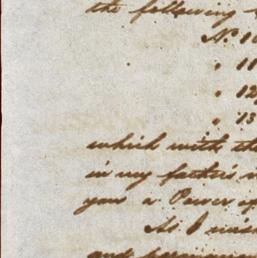 the following
No. 10
" 11
" 12
" 13
which with the
in my father's
you a Power of
As I wish
and